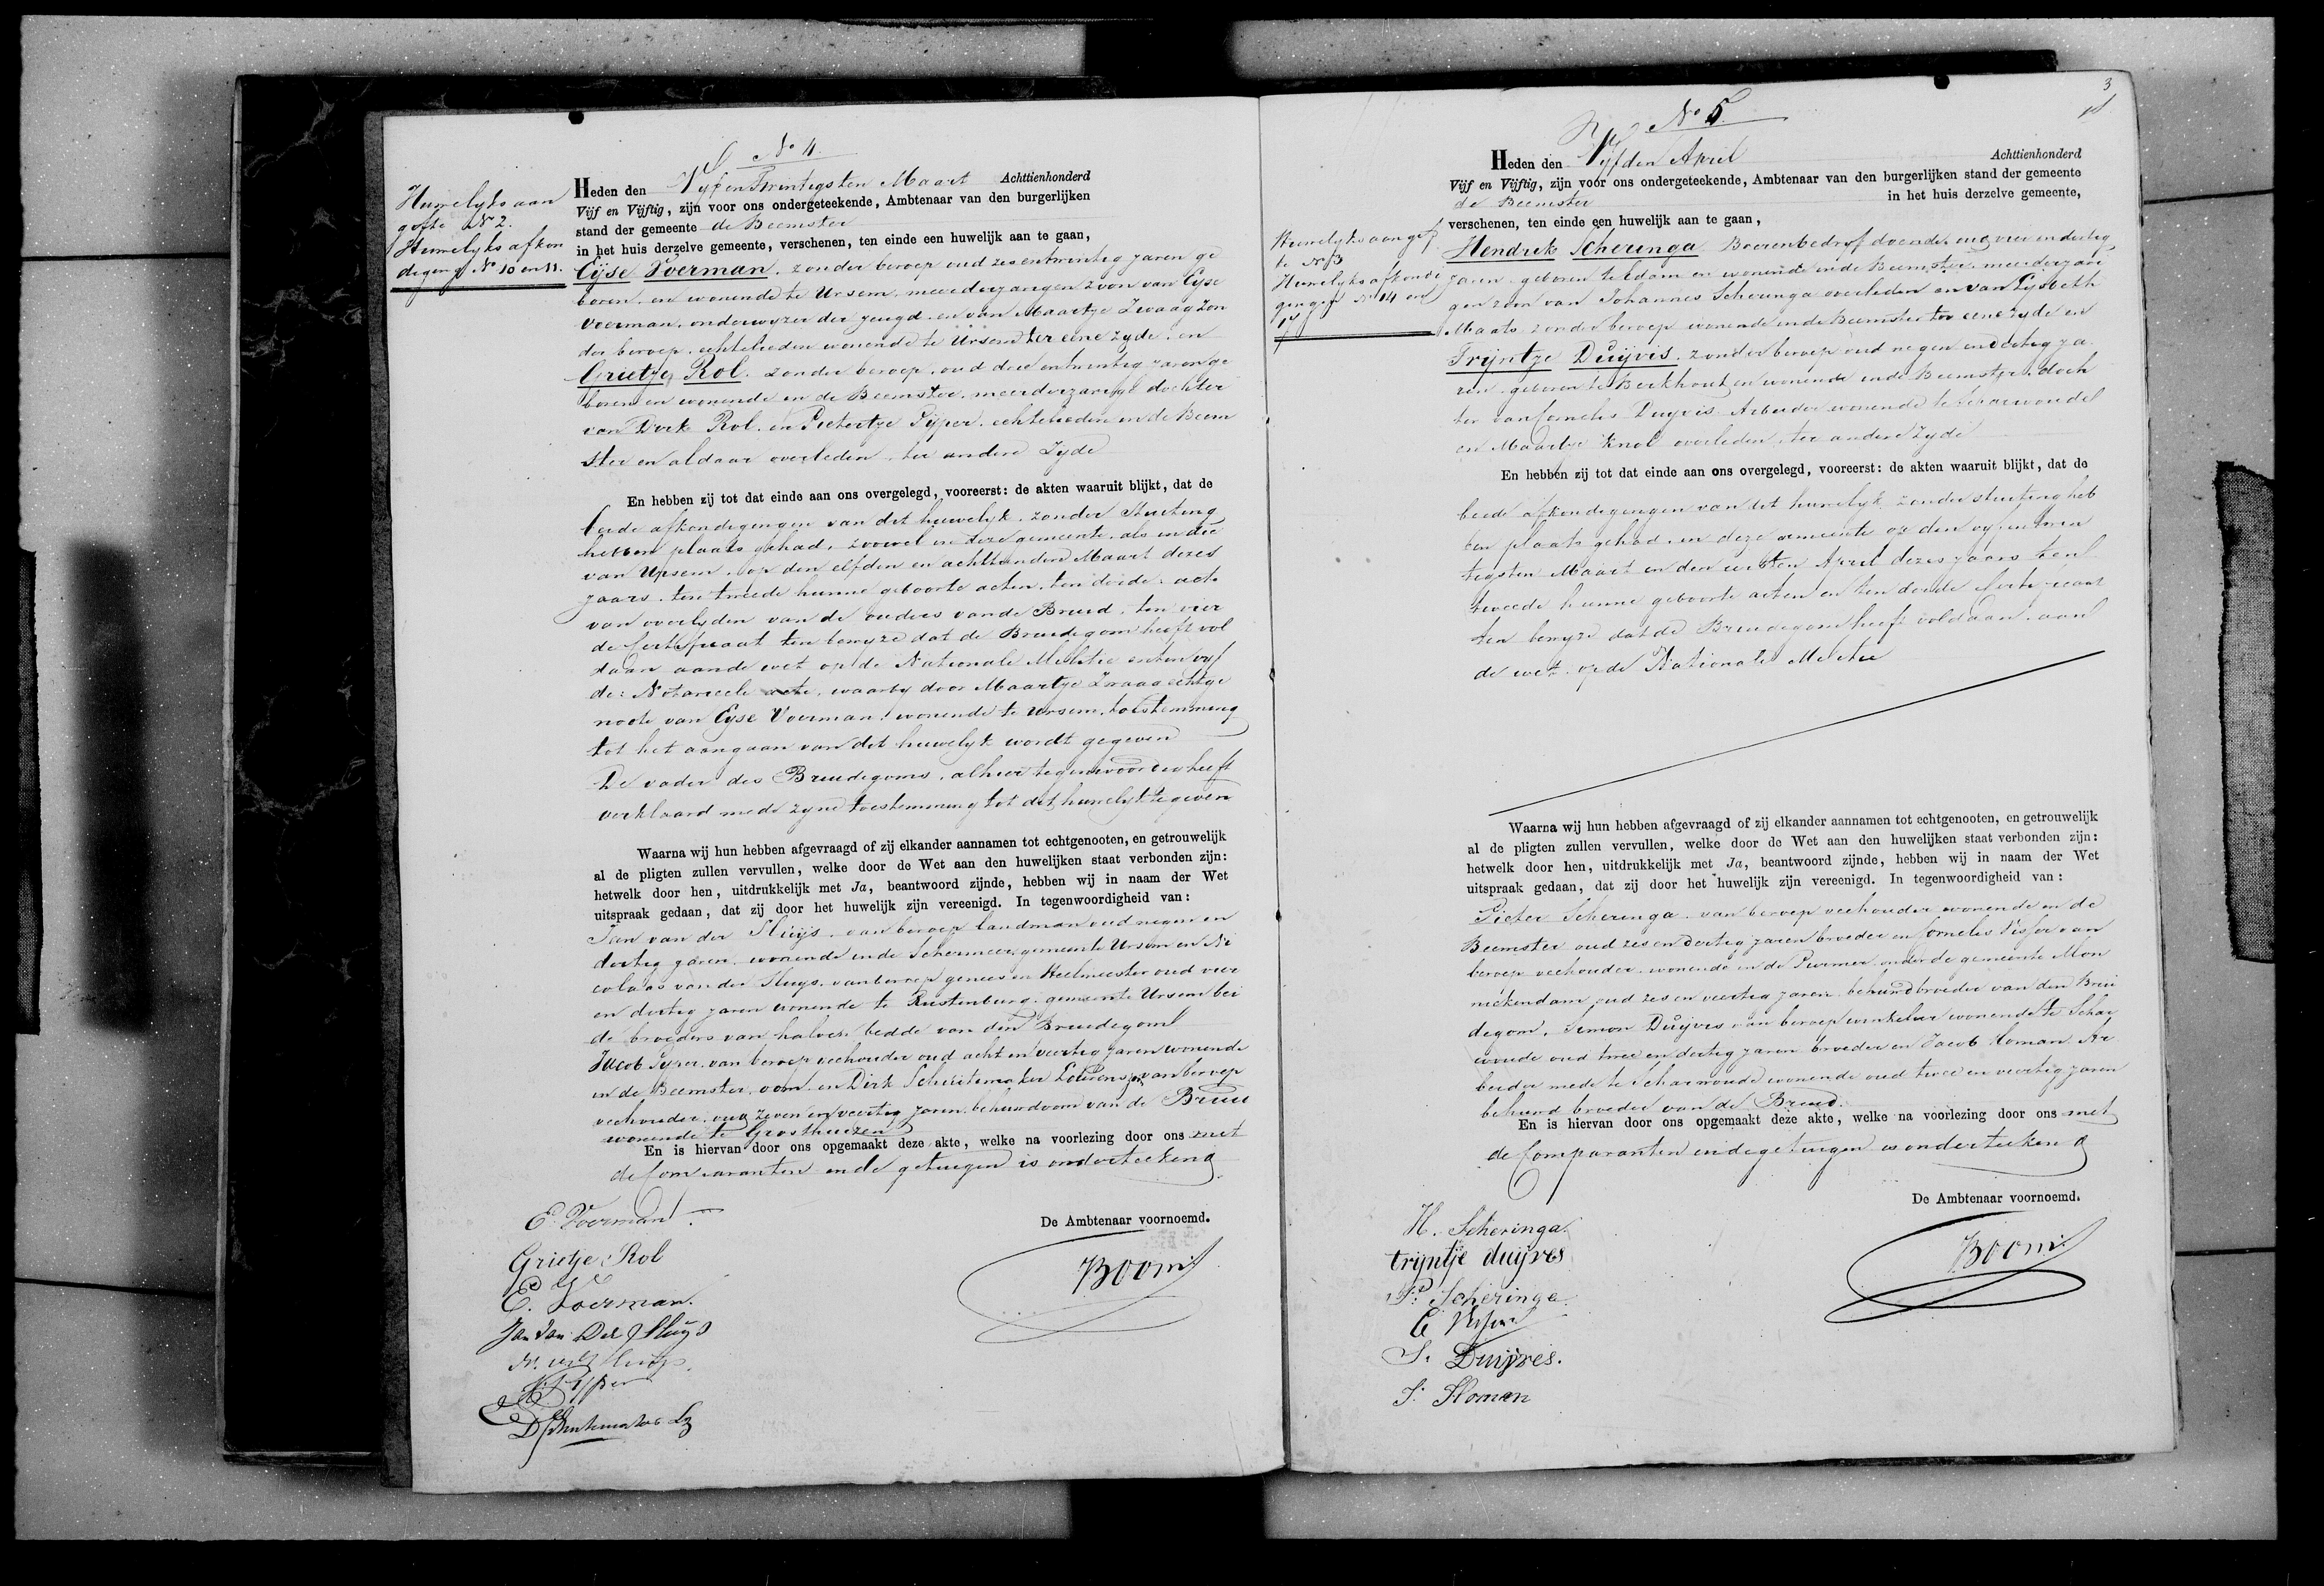 No 4.
Huwelyks aan
gifte No 2.
Huwelyks afkon
digingen No 10 en 11.
Heden den Vyf en Twintigsten Maart Achttienhonderd
Vijf en Vijftig, zijn voor ons ondergeteekende, Ambtenaar van den burgerlijken
stand der gemeente de Beemster
in het huis derzelve gemeente, verschenen, ten einde een huwelijk aan te gaan,
Eyse Voerman. zonder beroep oud zes en twintig jaren ge
boren en wonende te Ursem, meerderjarigen zoon van Eyse
Voerman, onderwyzer der jeugd en van Maartje Zwaag zon
der beroep, echtelieden wonende te Ursem ter eene zyde, en
Grietje Rol. zonder beroep, oud drie en twintig jaren ge
boren en wonende in de Beemster, meerderjarige dochter
van Dirk Rol. en Pietertje Pyper, echtelieden in de Beem
ster en aldaar overleden, ter andere Zyde
En hebben zij tot dat einde aan ons overgelegd, vooreerst: de akten waaruit blijkt, dat de
beide afkondigingen van dit huwelyk, zonder Stuiting
hebben plaats gehad, zoowel in deze gemeente, als in die
van Ursem, op den elfden en achttienden Maart dezes
jaars. ten tweede hunne geboorte acten, ten derde: acte
van overlyden van de ouders van de Bruid. ten vier
de Certificaat ten bewyze dat de Bruidegom heeft vol
daan aan de wet op de Nationale Militie en ten vyf
de: Notarieele acte, waarby door Maartje Zwaag echtge
noote van Eyse Voerman, wonende te Ursem, toestemming
tot het aangaan van dit huwelyk wordt gegeven
De vader des Bruidegoms, alhier tegenwoordig heeft
verklaard mede zyne toestemming tot dit huwelyk te geven
Waarna wij hun hebben afgevraagd of zij elkander aannamen tot echtgenooten, en getrouwelijk
al de pligten zullen vervullen, welke door de Wet aan den huwelijken staat verbonden zijn:
hetwelk door hen, uitdrukkelijk met Ja, beantwoord zijnde, hebben wij in naam der Wet
uitspraak gedaan, dat zij door het huwelijk zijn vereenigd. In tegenwoordigheid van:
Jan van der Sluijs, van beroep landman oud negen en
dertig jaren, wonende in de Schermeer, gemeente Ursem en Ni
colaas van der Sluys, van beroep genees en Heelmeester oud vier
en dertig jaren wonende te Rustenburg, gemeente Ursem bei
de broeders van halven bedde van den Bruidegom
Jacob Pyper, van beroep veehouder oud acht en veertig jaren wonende
in de Beemster, oom en Dirk Schuitemaker Lourensz van beroep
veehouder, oud zeven en veertig jaren, behuwdoom van de Bruid
wonende te Grosthuizen
En is hiervan door ons opgemaakt deze akte, welke na voorlezing door ons met
de Comparanten en de getuigen is onderteekend
De Ambtenaar voornoemd.
E. Voerman
Grietje Rol
E. Voerman.
Jan Van Der Sluijs
N. vd Sluijs.
J. Pijper
D Schuitemaker Lz
Boom
3
No 5.
Huwelyks aangif
te No 3
Huwelyks afkondi
gingen No 14 en
Heden den Vyfden April Achttienhonderd
Vijf en Vijftig, zijn voor ons ondergeteekende, Ambtenaar van den burgerlijken stand der gemeente
de Beemster in het huis derzelve gemeente,
verschenen, ten einde een huwelijk aan te gaan,
Hendrik Scheringa Boerenbedryf doende, oud vier en dertig
jaren, geboren te Edam en wonende in de Beemster, meerderjari
gen zoon van Johannes Scheringa overleden en van Lysbeth
Maats, zonder beroep wonende in de Beemster ter eene zyde en
Trijntje Duijvis. zonder beroep oud negen en dertig ja
ren, geboren te Berkhout en wonende in de Beemster, doch
ter van Cornelis Duyvis Arbeider wonende te Scharwoude
en Maartje Knol overleden, ter andere Zyde
En hebben zij tot dat einde aan ons overgelegd, vooreerst: de akten waaruit blijkt, dat de
beide afkondigingen van dit huwelyk, zonder stuiting heb
ben plaats gehad, in deze gemeente op den vyf en twin
tigsten Maart en den eersten April dezes jaars ten
tweede hunne geboorte acten en ten derde Certificaat
ten bewyze dat de Bruidegom heeft voldaan, aan
de wet op de Nationale Militie
Waarna wij hun hebben afgevraagd of zij elkander aannamen tot echtgenooten, en getrouwelijk
al de pligten zullen vervullen, welke door de Wet aan den huwelijken staat verbonden zijn:
hetwelk door hen, uitdrukkelijk met Ja, beantwoord zijnde, hebben wij in naam der Wet
uitspraak gedaan, dat zij door het huwelijk zijn vereenigd. In tegenwoordigheid van:
Pieter Scheringa van beroep veehouder wonende in de
Beemster oud zes en dertig jaren broeder en Cornelis Visser van
beroep veehouder, wonende in de Purmer, onder de gemeente Mon
nickendam oud zes en veertig jaren behuwdbroeder van den Brui
degom, Simon Duijvis van beroep winkelier wonende te Schar
woude oud twee en dertig jaren broeder en Jacob Homan Ar
beider mede te Scharwoude wonende oud twee en veertig jaren
behuwd broeder van de Bruid.
En is hiervan door ons opgemaakt deze akte, welke na voorlezing door ons met
de Comparanten en de getuigen is onderteekend
De Ambtenaar voornoemd.
H. Scheringa.
trijntje duijves
P. Scheringa
C Visser
S. Duijves.
J. Homan
Boom